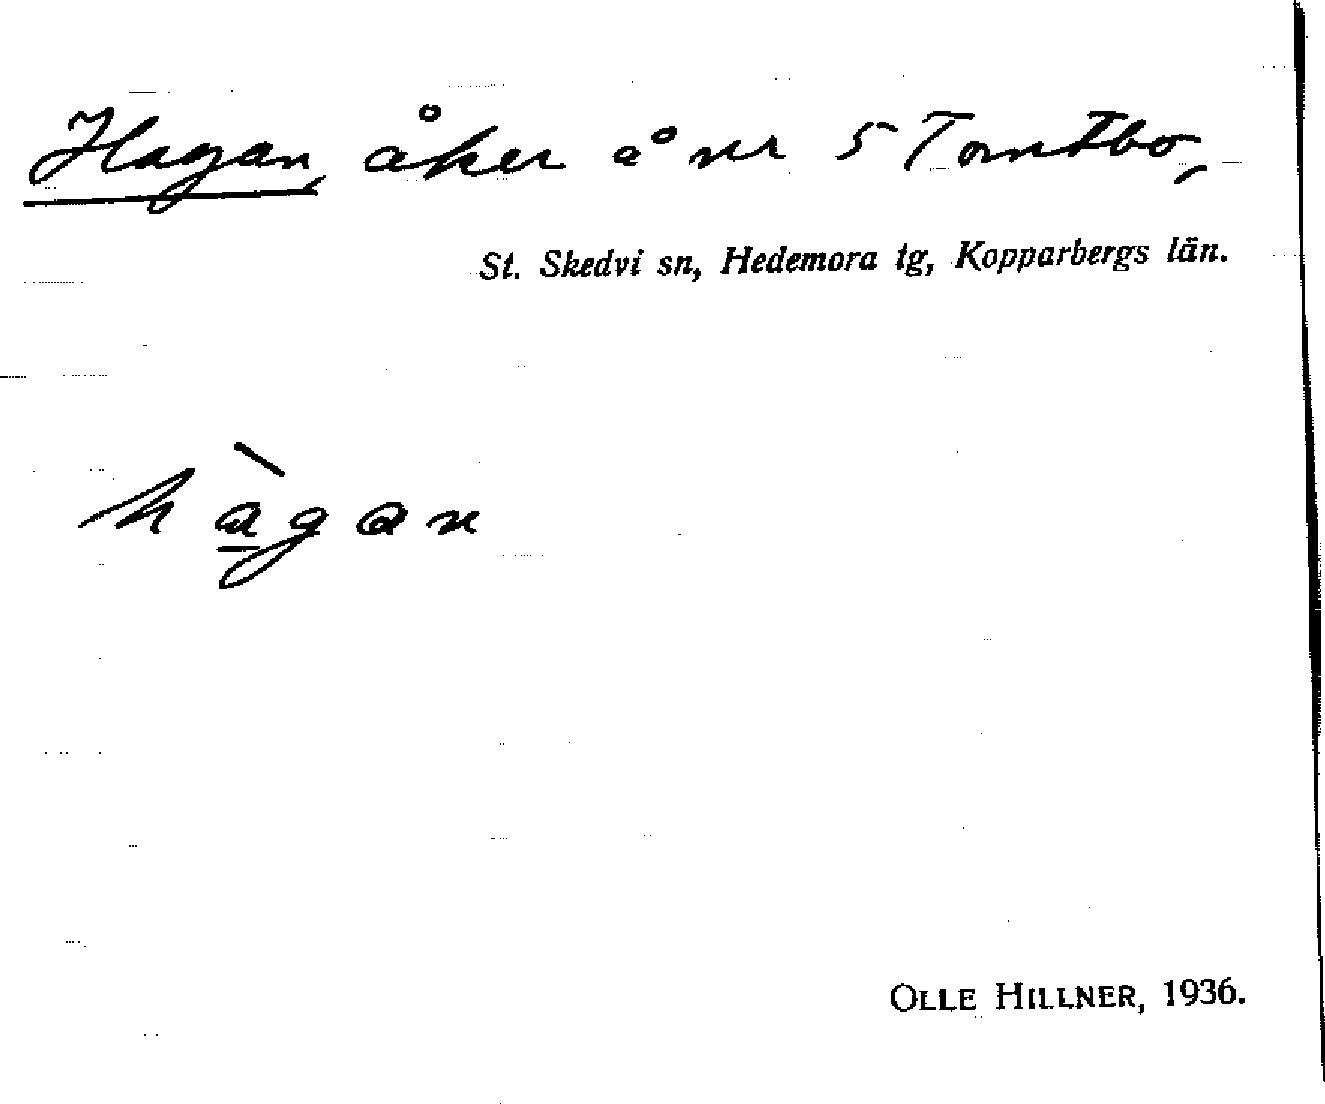 Hagan, åker å nr 5 Tomtbo,
St. Skedvi sn, Hedemora tg, Kopparbergs län.
hàgan
OLLE HILLNER, 1936.